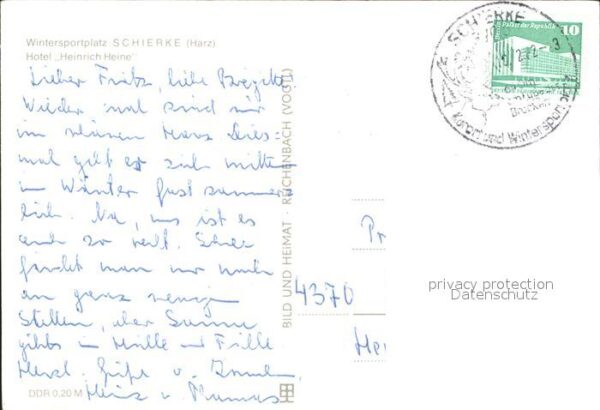 Wintersportplatz SCHIERKE (Harz)
Hotel „Heinrich Heine"
Lieber Fritz, liebe Brigitte
Wieder mal sind wir
im schönen Harz. Dies-
mal geht es sich mitten
im Winter fast sommer-
lich. Na, uns ist es
auch so recht. Schnee
findet man nur noch
an ganz wenigen
Stellen, aber Sonne
gibts in Hülle und Fülle.
Herzl. Grüße v.
Heinz u.
DDR 0,20 M
BILD UND HEIMAT · REICHENBACH (VOGTL)
4370
SCHIERKE
Brocken
Kurort und Wintersport
Berlin, Palast der Republik
10
DDR
privacy protection
Datenschutz